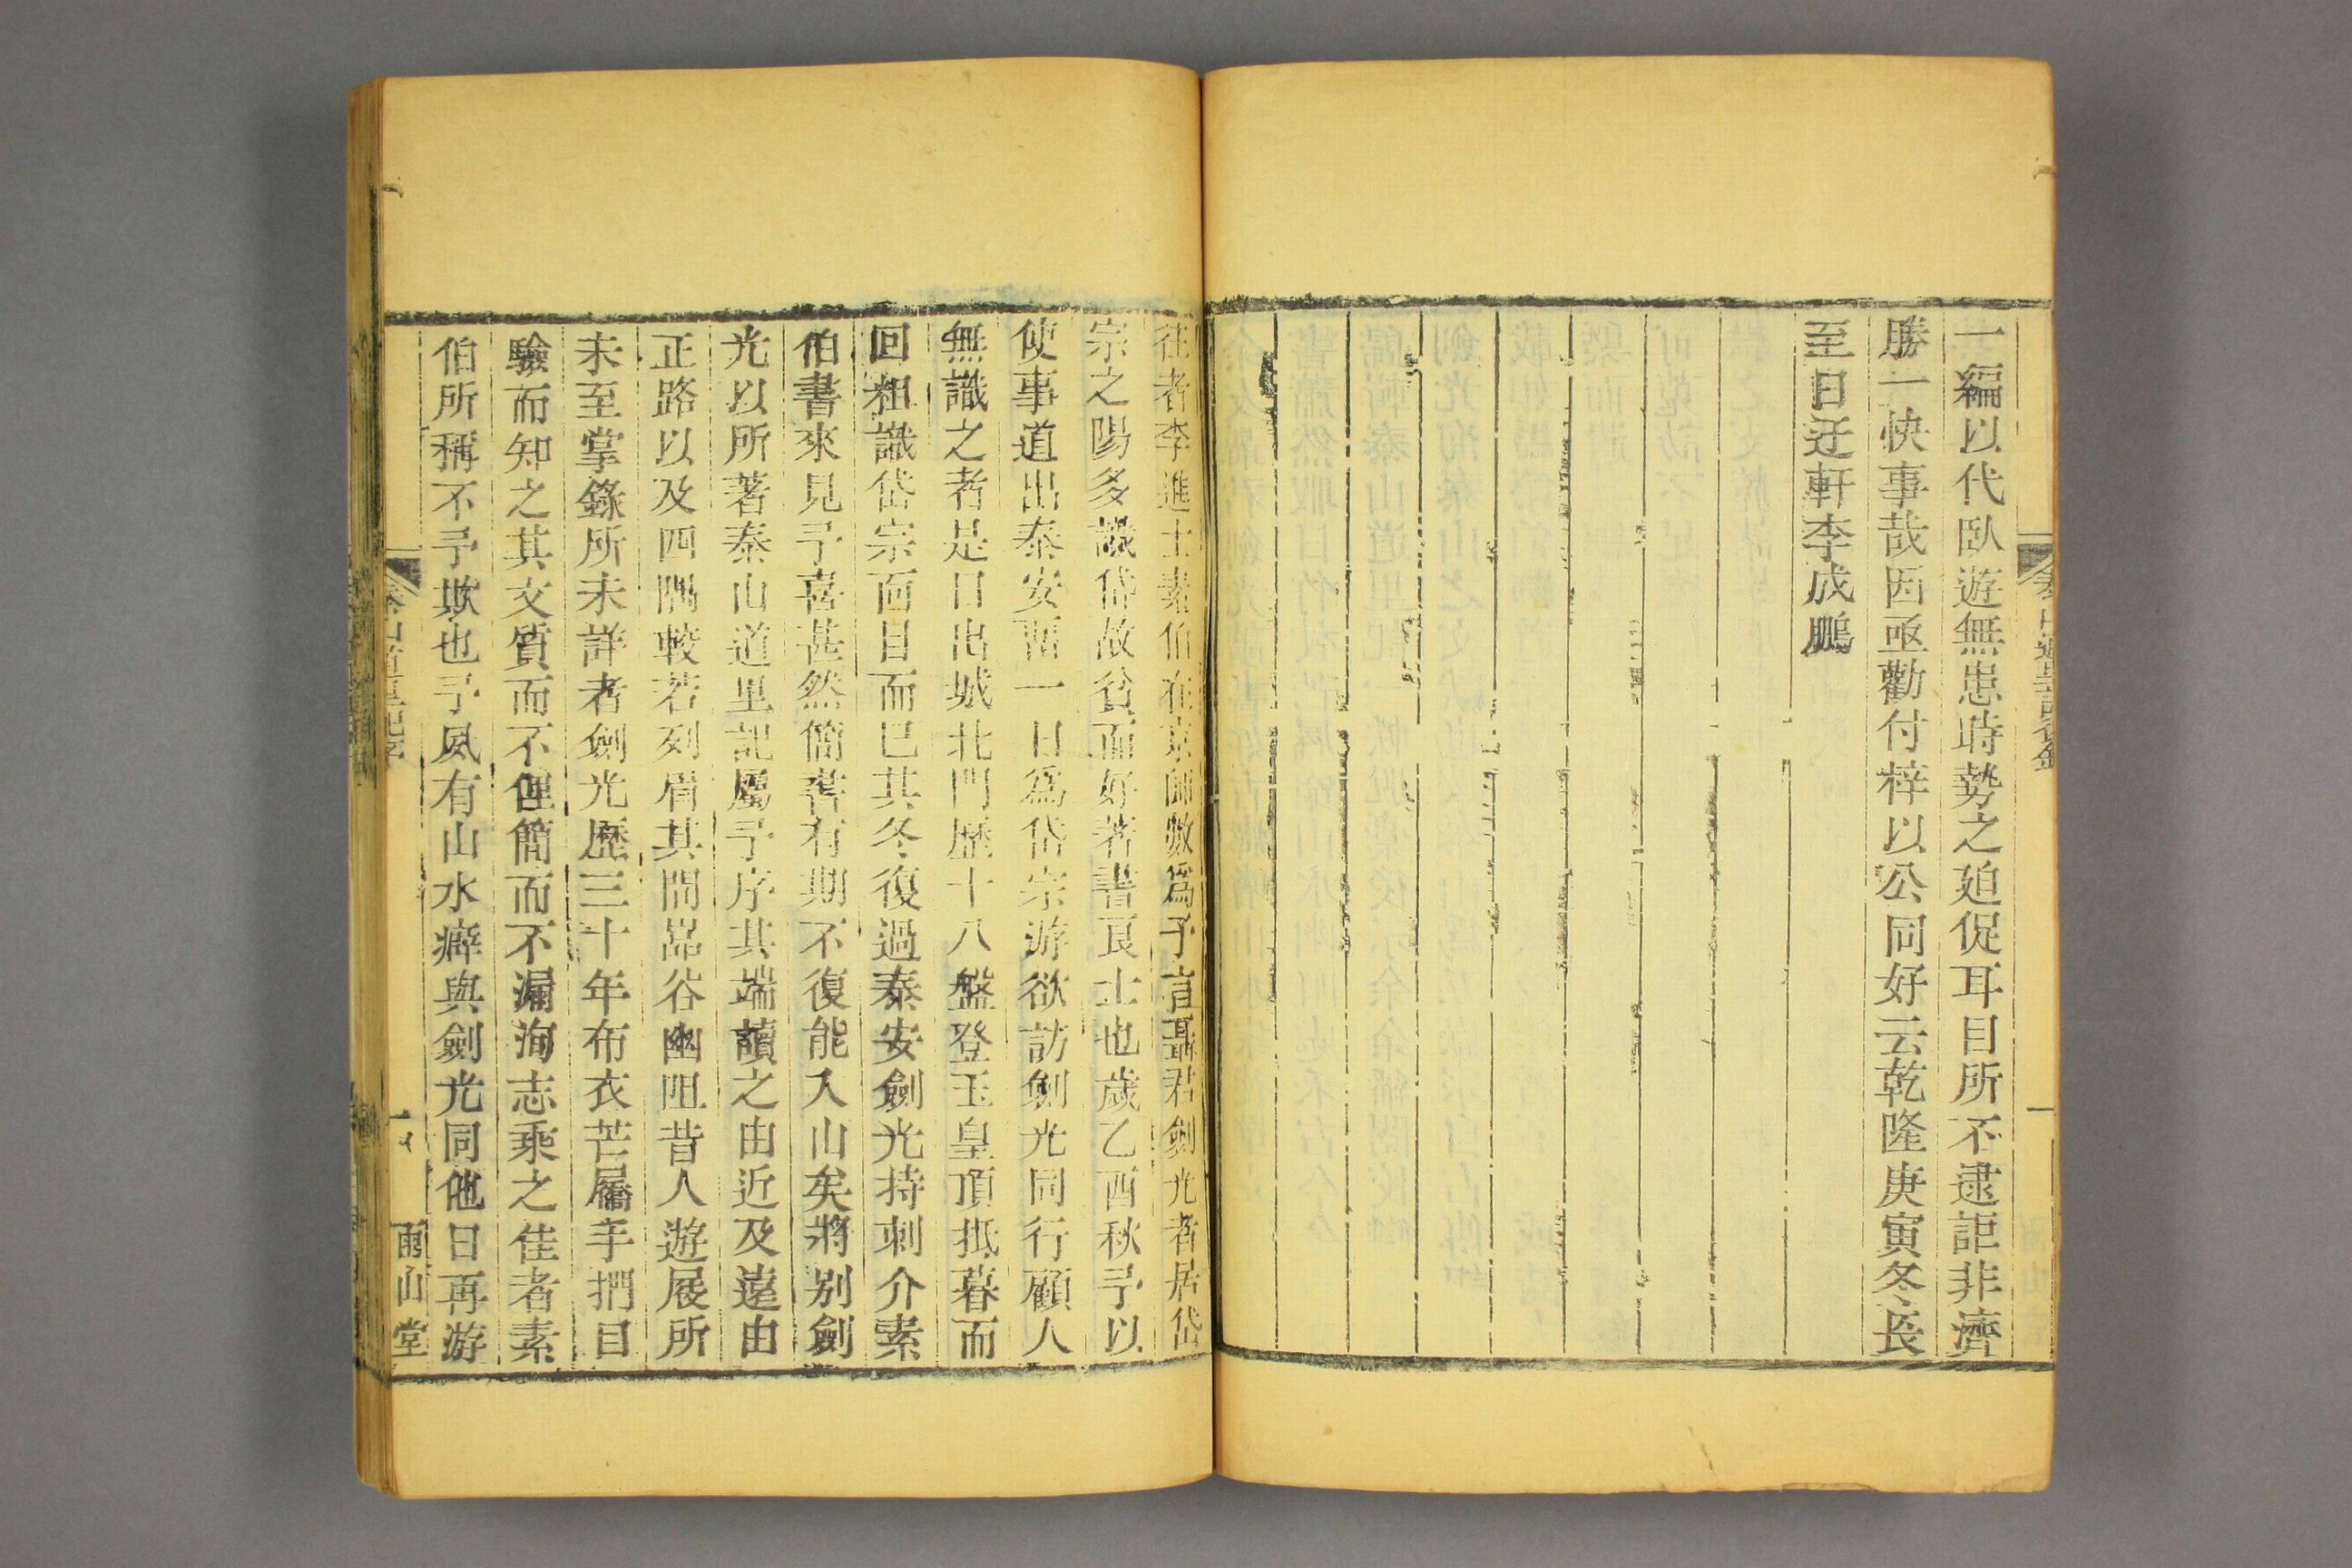 一編以代臥遊無患時勢之廹促耳目所不逮詎非濟
勝一快事哉因亟勸付梓以公同好云乾隆庚寅冬長
至日迂軒李成鵬
往者李進士素伯在京師數爲予言聶君劍光者居岱
宗之陽多識岱故貧而好著書良士也歲乙酉秋予以
使事道出泰安暫一日爲岱宗游欲訪劍光同行顧人
無識之者是日出城北門歷十八盤登玉皇頂抵暮而
回粗識岱宗面目而已其冬復過泰安劍光持刺介素
伯書來見予喜甚然簡書有期不復能入山矣將别劍
光以所著泰山道里記屬予序其端讀之由近及遠由
正路以及四隅較若列眉其間嵓谷幽阻昔人遊屐所
未至掌錄所未詳者劍光歷三十年布衣芒屩手捫目
驗而知之其文質而不俚簡而不漏洵志乘之佳者素
伯所稱不予欺也予夙有山水癖與劍光同他日再游
泰山道里記序
一
雨山堂